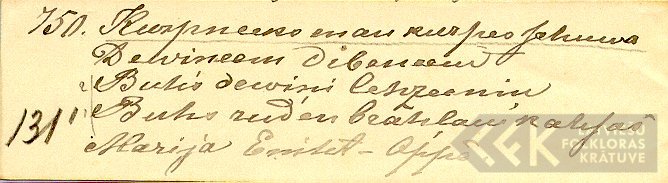 750. Kurpneeks man kurpes schuwa
Dewineem dibeneem
Buhs dewini leszeenin
131 Buhs ruden brahlam kahsas
Marija Emilt - Oppe
LATVIEŠU
FOLKLORAS
KRĀTUVE